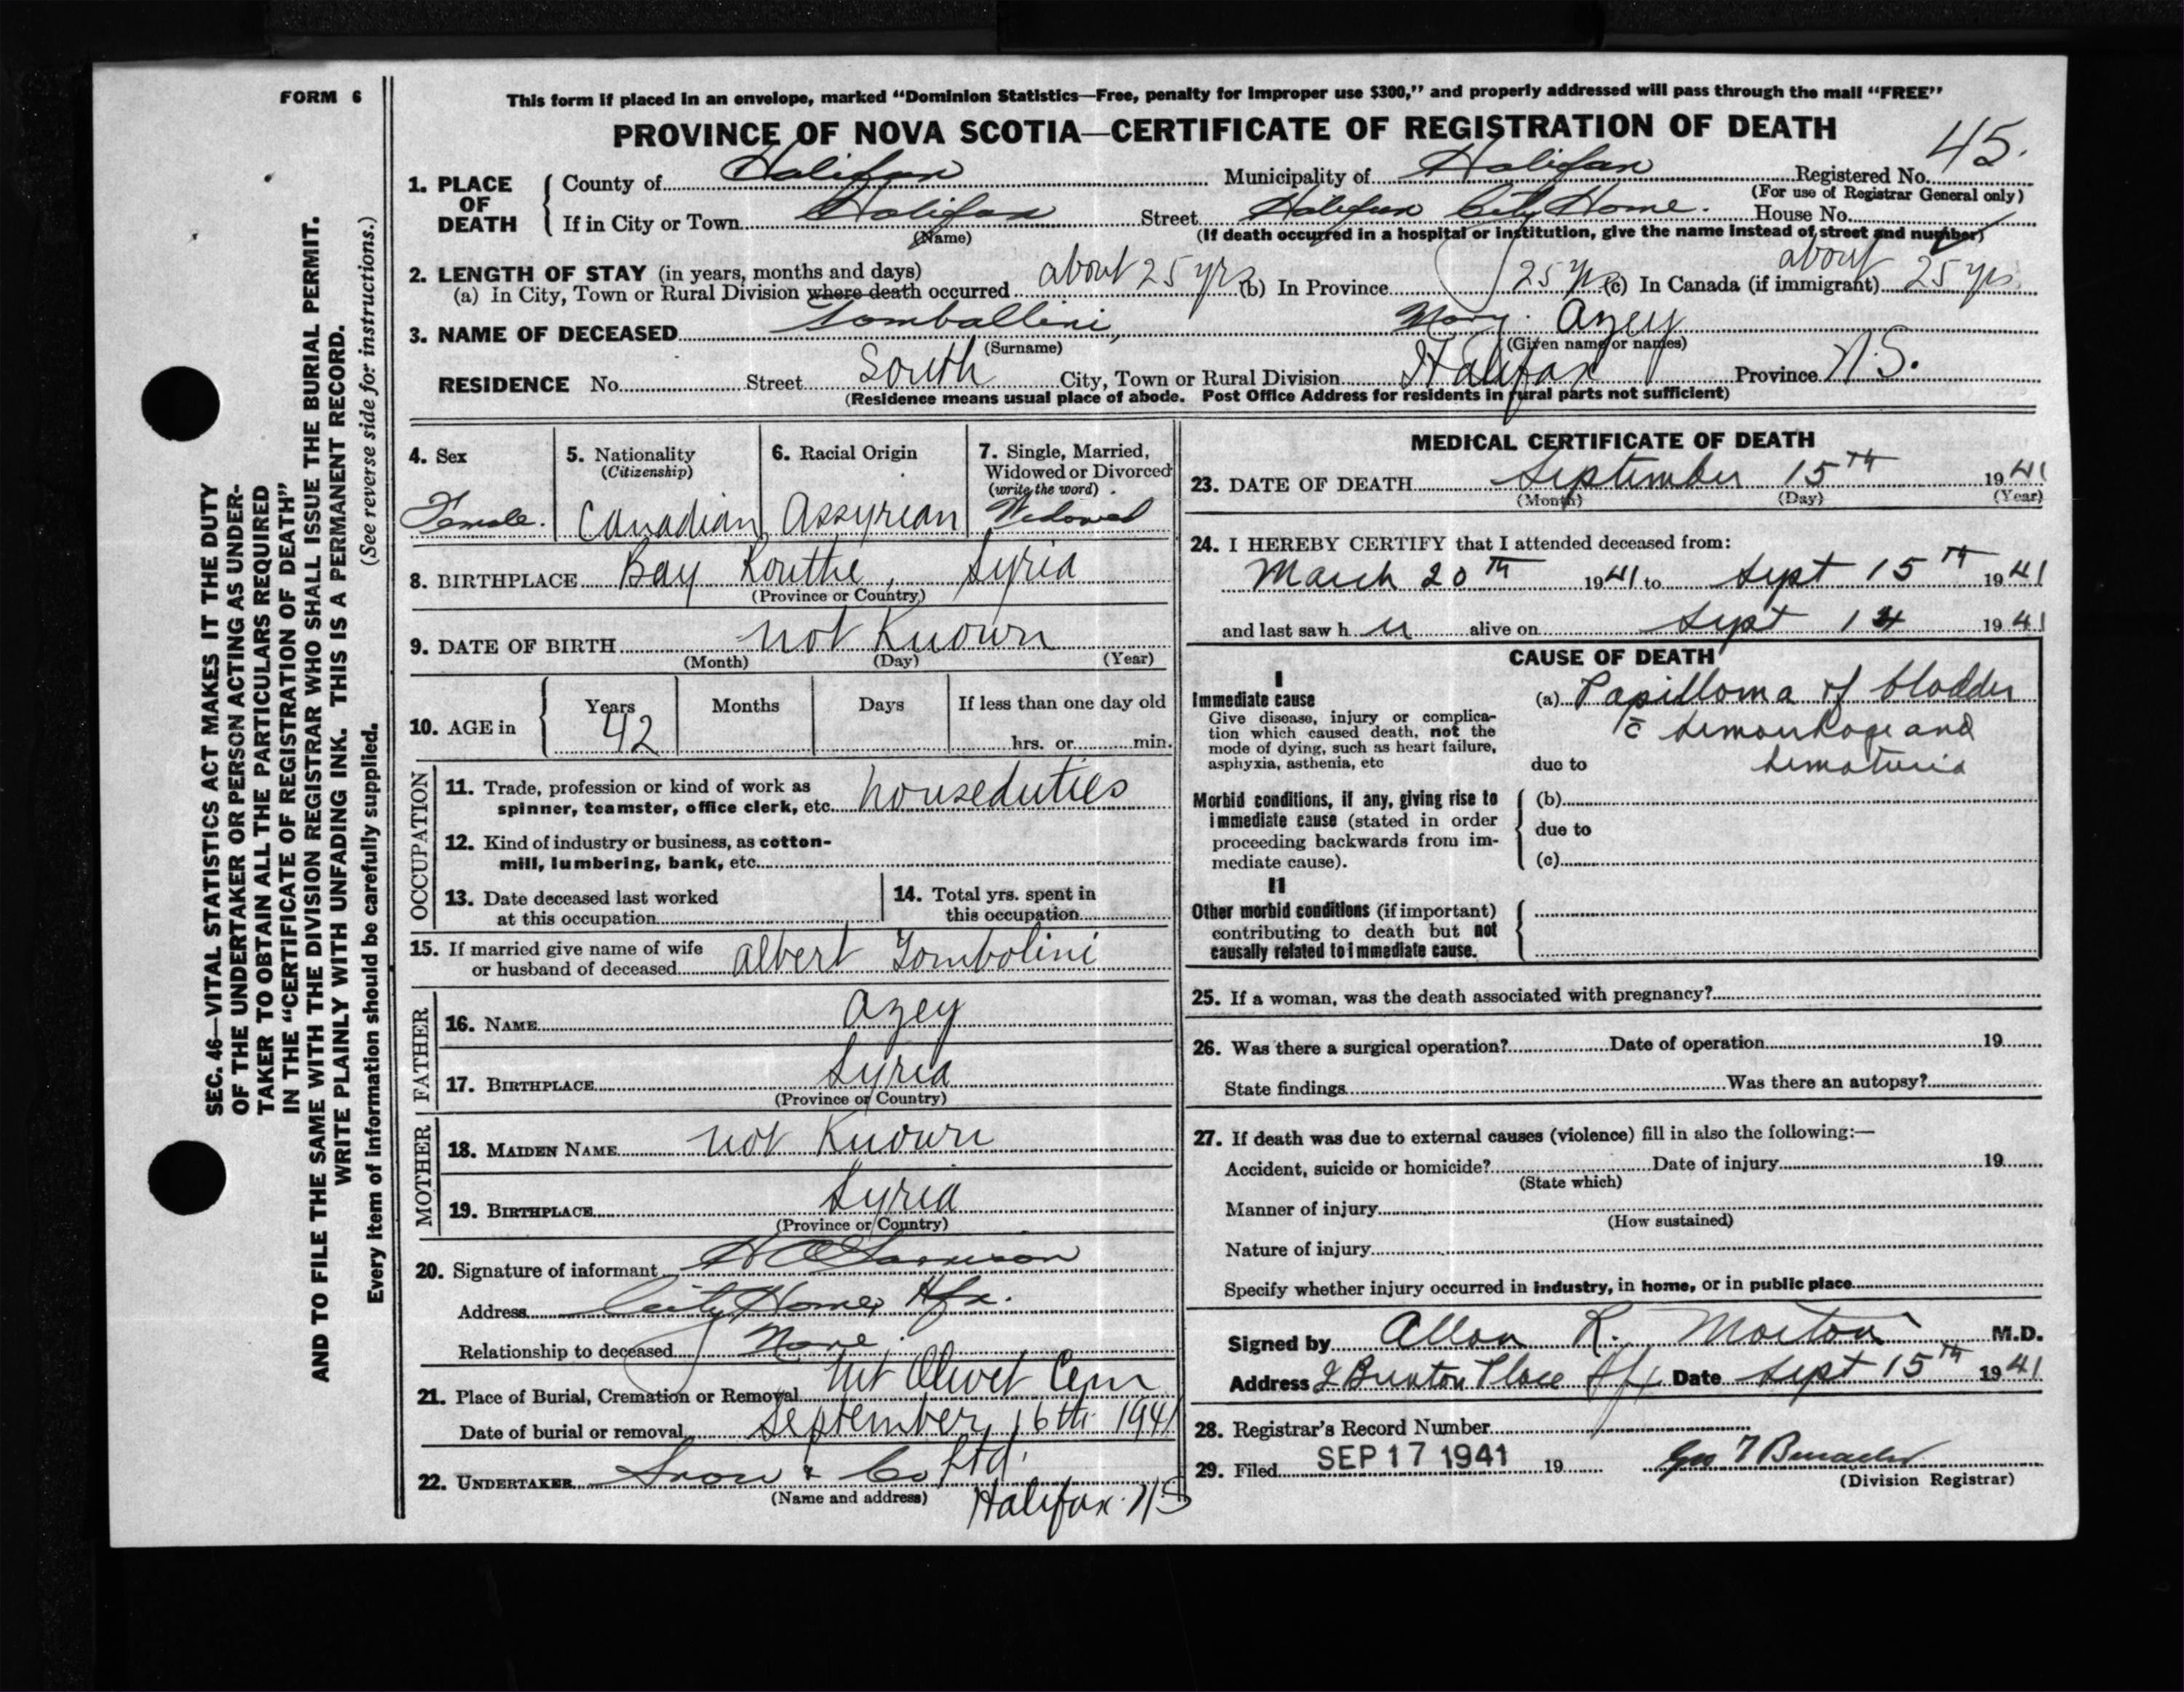 FORM 6
This form if placed in an envelope, marked “Dominion Statistics—Free, penalty for improper use $300,” and properly addressed will pass through the mail “FREE”
PROVINCE OF NOVA SCOTIA—CERTIFICATE OF REGISTRATION OF DEATH
45.
1. PLACE OF DEATH
County of Halifax Municipality of Halifax Registered No.
(For use of Registrar General only)
If in City or Town Halifax Street Halifax City Home. House No.
(Name) (If death occurred in a hospital or institution, give the name instead of street and number)
2. LENGTH OF STAY (in years, months and days)
(a) In City, Town or Rural Division where death occurred about 25 yrs (b) In Province 25 yrs (c) In Canada (if immigrant) about 25 yrs
3. NAME OF DECEASED Tomballini, Mary. Azey
(Surname) (Given name or names)
RESIDENCE No. Street South City, Town or Rural Division Halifax Province N.S.
(Residence means usual place of abode. Post Office Address for residents in rural parts not sufficient)
4. Sex
Female.
5. Nationality
(Citizenship)
Canadian
6. Racial Origin
Assyrian
7. Single, Married,
Widowed or Divorced
(write the word)
Widowed
8. BIRTHPLACE Bay Routhe, Syria
(Province or Country)
9. DATE OF BIRTH not Known
(Month) (Day) (Year)
10. AGE in
Years Months Days If less than one day old
42 hrs. or min.
OCCUPATION
11. Trade, profession or kind of work as
spinner, teamster, office clerk, etc. houseduties
12. Kind of industry or business, as cotton-
mill, lumbering, bank, etc.
13. Date deceased last worked
at this occupation
14. Total yrs. spent in
this occupation
15. If married give name of wife
or husband of deceased albert Tombolini
FATHER
16. NAME Azey
17. BIRTHPLACE Syria
(Province or Country)
MOTHER
18. MAIDEN NAME not Known
19. BIRTHPLACE Syria
(Province or Country)
20. Signature of informant
Address City Home, Hfx.
Relationship to deceased None
21. Place of Burial, Cremation or Removal Mt Olivet Cem
Date of burial or removal September 16th 1941
22. UNDERTAKER Snow & Co Ltd.
(Name and address) Halifax. N S
MEDICAL CERTIFICATE OF DEATH
23. DATE OF DEATH September 15TH 1941
(Month) (Day) (Year)
24. I HEREBY CERTIFY that I attended deceased from:
March 20TH 1941 to Sept 15TH 1941
and last saw h er alive on Sept 14 1941
CAUSE OF DEATH
I
Immediate cause
Give disease, injury or complica-
tion which caused death, not the
mode of dying, such as heart failure,
asphyxia, asthenia, etc
(a) Papilloma of bladder
c̄ hemorrhage and
due to hematuria
Morbid conditions, if any, giving rise to
immediate cause (stated in order
proceeding backwards from im-
mediate cause).
(b)
due to
(c)
II
Other morbid conditions (if important)
contributing to death but not
causally related to immediate cause.
25. If a woman, was the death associated with pregnancy?
26. Was there a surgical operation? Date of operation 19
State findings Was there an autopsy?
27. If death was due to external causes (violence) fill in also the following:—
Accident, suicide or homicide? Date of injury 19
(State which)
Manner of injury
(How sustained)
Nature of injury
Specify whether injury occurred in industry, in home, or in public place
Signed by Allan R. Morton M.D.
Address Place Hfx Date Sept 15TH 1941
28. Registrar’s Record Number
29. Filed SEP 17 1941 19
(Division Registrar)
SEC. 46—VITAL STATISTICS ACT MAKES IT THE DUTY
OF THE UNDERTAKER OR PERSON ACTING AS UNDER-
TAKER TO OBTAIN ALL THE PARTICULARS REQUIRED
IN THE “CERTIFICATE OF REGISTRATION OF DEATH”
AND TO FILE THE SAME WITH THE DIVISION REGISTRAR WHO SHALL ISSUE THE BURIAL PERMIT.
WRITE PLAINLY WITH UNFADING INK. THIS IS A PERMANENT RECORD.
Every item of information should be carefully supplied. (See reverse side for instructions.)